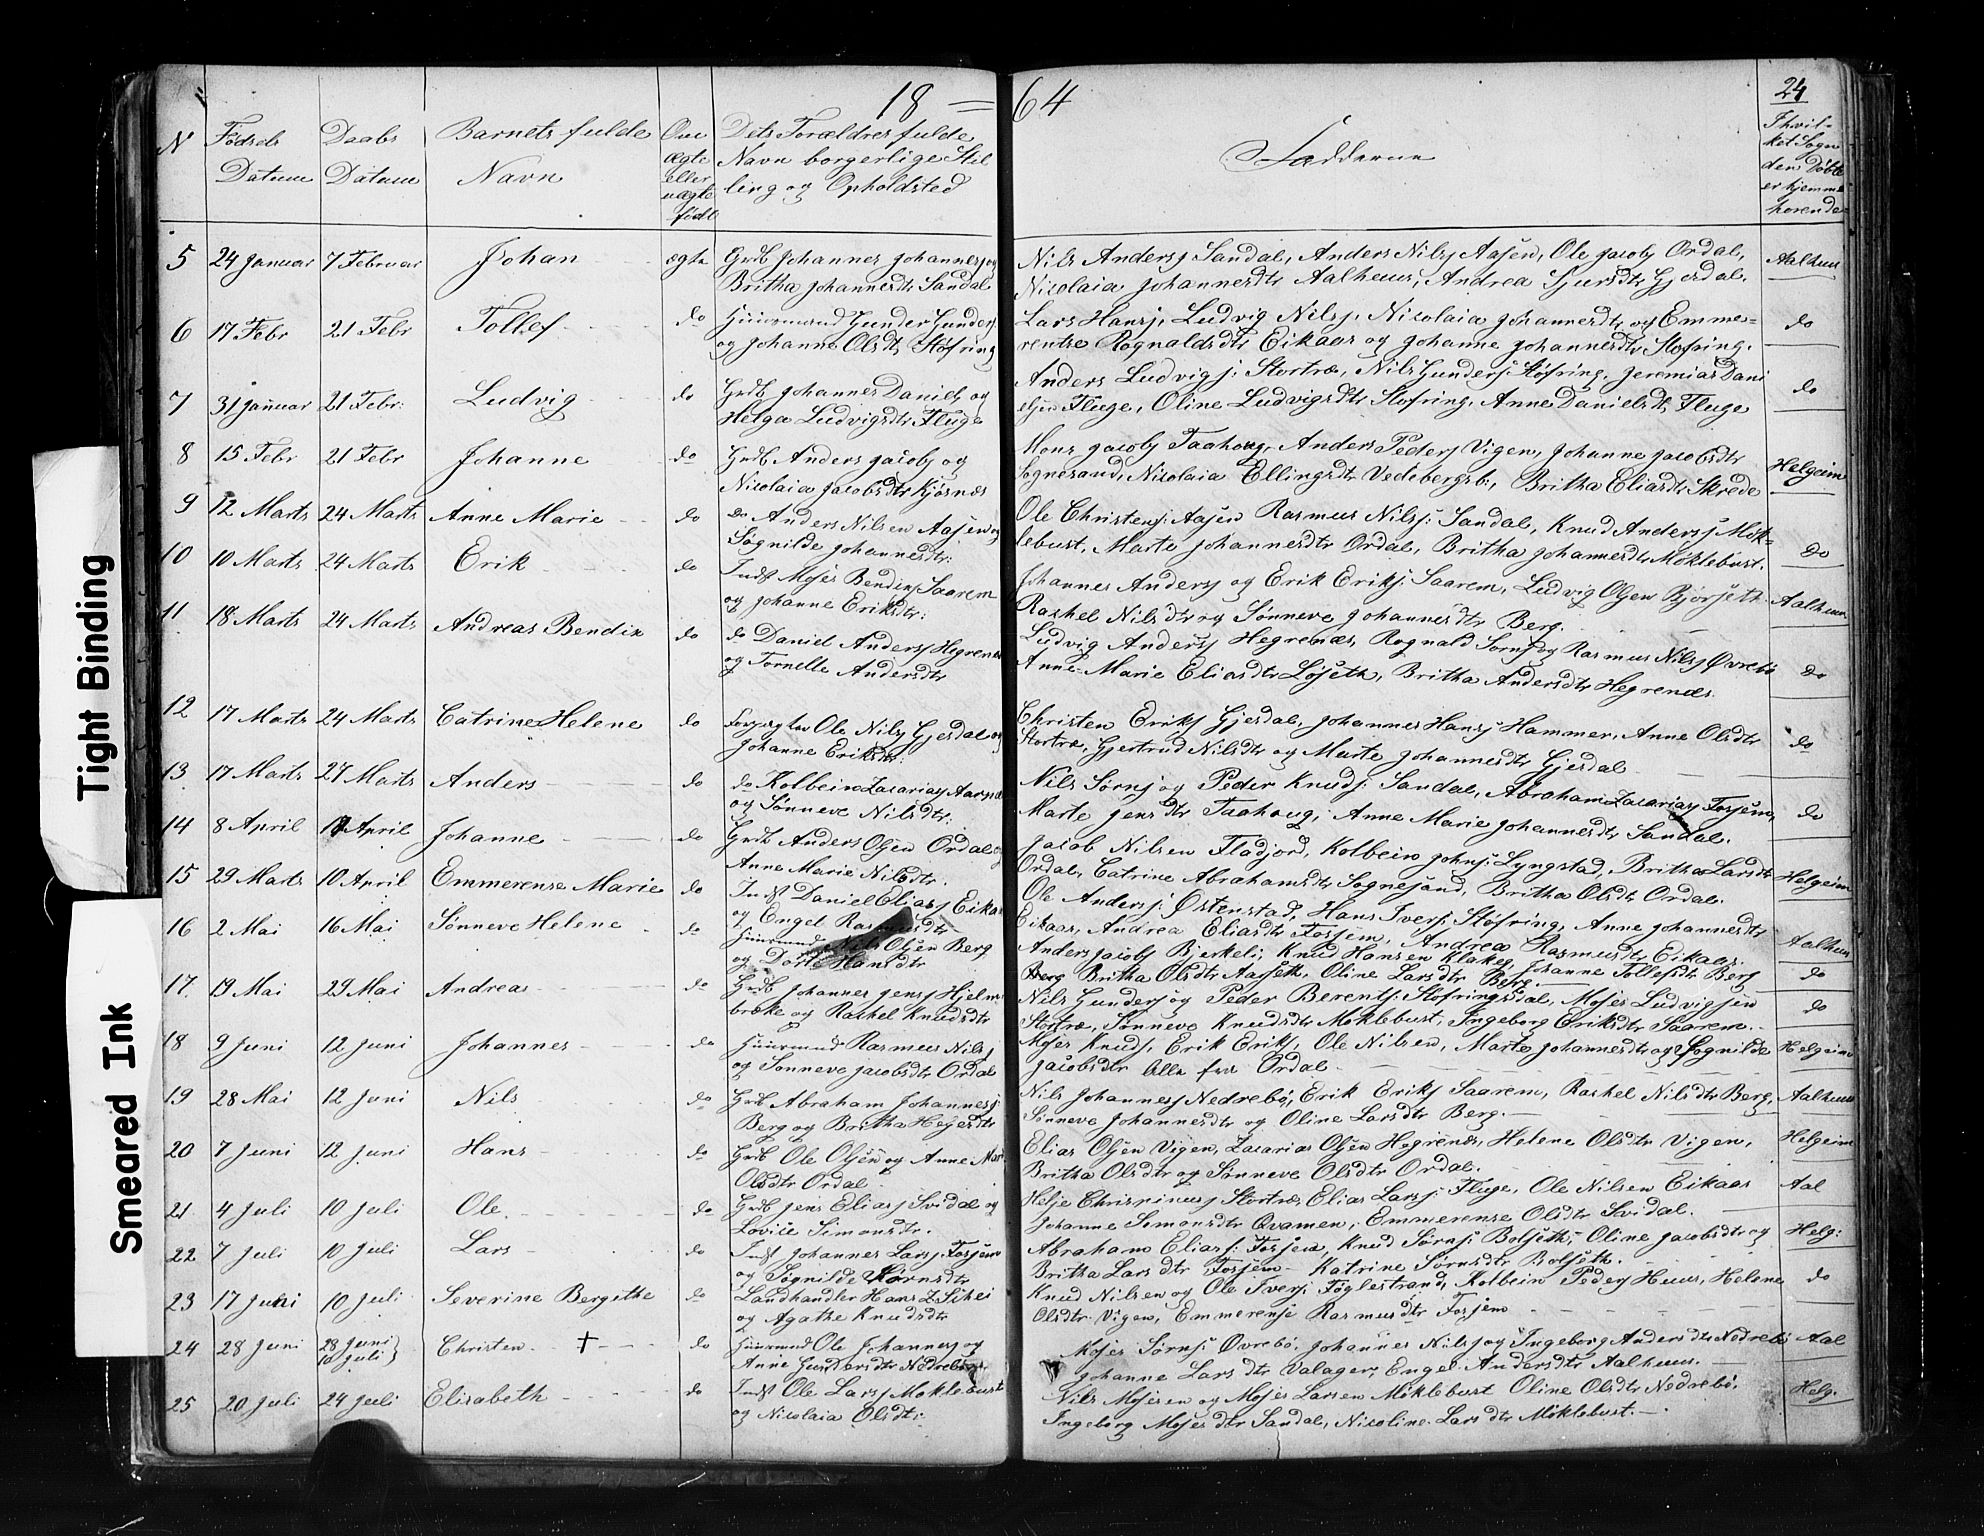 18 = 64
24
N
Fødsels Datum
Daabs Datum
Barnets fulde Navn
Om ægte eller uægte født
Dets Forældres fulde Navn borgerlige Stilling og Opholdsted
Fadderne
I hvilket Sogn den Døbte er hjemmehørende
5 24 Januar 7 Februar Johan ægte Grdb Johannes Johannesj og
Britha Johannesdtr Sandal
Nils Andersj Sandal, Anders Nilsj Aasen, Ole Jacobj Ordal,
Nicolaia Johannesdtr Aalheus, Andrea Sjursdtr Gjesdal.
Aalhuus
6 17 Febr 21 Febr Tollef do Huusmand Gunder Gundersj
og Johanne Olsdtr Støfring
Lars Hansj, Ludvig Nilsj, Nicolaia Johannesdtr og Emme=
rentse Rognaldsdtr Eikaas og Johanne Johannesdtr Støfring.
do
7 31 Januar 21 Febr: Ludvig do Grdb Johannes Danielsj og
Helga Ludvigsdtr Fluge
Anders Ludvigsj: Stortræ, Nils Gundersj: Støfring, Jeremias Dani
elsen Fluge, Oline Ludvigsdtr Støfring, Anne Danielsdtr Fluge
do
8 15 Febr 21 Febr Johanne do Grdb Anders Jacobj og
Nicolaia Jacobsdtr Kjøsnæs
Mons Jacobj Taahoug, Anders Pedersj Vigen, Johanne Jacobsdtr
Sognesand, Nicolaia Ellingsdtr Vedebergsb:, Britha Eliasdtr Skrede
Helgeim
9 12 Marts 24 Marts Anne Marie do do Anders Nilsen Aasen og
Søgnilde Johannesdtr:
Ole Christensj: Aasen Rasmus Nilsj: Sandal, Knud Andersj Møk=
lebust, Marte Johannesdtr Ordal, Britha Johannesdtr Møklebust.
do
10 10 Marts 24 Marts Erik do Indst Moses Bendixsj Saarem
og Johanne Eriksdtr:
Johannes Andersj og Erik Eriksj: Saarem, Ludvig Olsen Bjørseth
Rachel Nilsdtr og Sønneve Johannesdtr Berg.
Aalhuus
11 18 Marts 24 Marts Andreas Bendix do do Daniel Andersj Hegrenæs
og Tornelle Andersdtr
Ludvig Andersj Hegrenæs, Rognald Sørnsj og Rasmus Nilsj Øvrebø
Anne Marie Eliasdtr Løseth, Britha Andersdtr Hegrenæs.
do
12 17 Marts 24 Marts Catrine Helene do Forpagter Ole Nilsj Gjesdal og
Johanne Eriksdtr:
Christen Eriksj Gjesdal, Johannes Hansj Hammer, Anne Olsdtr
Stortræ, Gjertrud Nilsdtr og Marte Johannesdtr Gjesdal
do
13 17 Marts 27 Marts Anders do do Kolbein Zacariasj Aarnæs
og Sønneve Nilsdtr:
Nils Sørnsj og Peder Knudsj: Sandal, Abraham Zacariasj Fosjem,
Marte Jensdtr Taahoug, Anne Marie Johannesdtr Sandal.
do
14 8 April 17 April Johanne do Grdb Anders Olsen Ordal og
Anne Marie Nilsdtr.
Jacob Nilsen Fladjord, Kolbein Johnsj: Lyngstad, Britha Larsdtr
Ordal, Catrine Abrahamsdtr Sognesand, Britha Olsdtr Ordal.
Helgeim
15 29 Marts 10 April Emmerense Marie do Indst Daniel Eliasj Eikaas
og Engel Rasmusdtr
Ole Andersj: Østenstad, Hans Iversj: Støfring, Anne Johannesdtr
Eikaas, Andrea Eliasdtr Fosjem, Andrea Rasmusdtr Eikaas.
Aalhuus
16 2 Mai 16 Mai Sønneve Helene do Huusmand Nils Olsen Berg
og Dorte Hansdtr
Anders Jacobj Bjerkeli, Knud Hansen Klakeg, Johanne Tollefsdtr Berg
Berg Britha Olsdtr Aaseth, Oline Larsdtr Berg.
do
17. 19 Mai 29 Mai Andreas do Grdb Johannes Jensj Hjelm
bræke og Rachel Knudsdtr
Nils Gundersj og Peder Berentsj: Støfringsdal, Moses Ludvigsen
Stortræ, Sønneve Knudsdtr Møklebust, Ingeborg Eriksdtr Saarem.
do
18 9 Juni 12 Juni Johannes do Huusmand Rasmus Nilsj
og Sønneve Jacobsdtr Ordal
Moses Knudsj, Erik Eriksj, Ole Nilsen, Marte Johannesdtr og Søgnilde
Jacobsdtr alle fra Ordal
Helgeim
19 28 Mai 12 Juni Nils do Grdb Abraham Johannesj
Berg og Britha Hejesdtr
Nils Johannesj Nedrebø, Erik Eriksj Saarem, Rachel Nilsdtr Berg,
Sønneve Johannesdtr og Oline Larsdtr Berg.
Aalhuus
20 7 Juni 12 Juni Hans do Grdb Ole Olsen og Anne Mar:
Olsdtr Ordal
Elias Olsen Vigen, Zacarias Olsen Hegrenæs, Helene Olsdtr Vigen,
Britha Olsdtr og Sønneve Olsdtr Ordal.
Helgeim
21 4 Juli 10 Juli Ole. do Grdb Jens Eliasj Svidal og
Lovise Simonsdtr.
Helje Chrispinusj Stortræ, Elias Larsj: Fluge, Ole Nilsen Eikaas
Johanne Simonsdtr Qvamen, Emmerense Olsdtr Svidal.
Aal
22 7 Juli 10 Juli Lars do Indst Johannes Larsj Fosjem
og Søgnilde Sørnsdtr
Abraham Eliasj: Fosjem, Knud Sørnsj: Bolseth, Oline Jacobsdtr og
Britha Larsdtr Fosjem Katrine Sørnsdtr Bolseth.
Helg:
23 17 Juni 10 Juli Severine Bergithe do Landhandler Hans Z Sikei
og Agathe Knudsdtr
Knud Nilsen og Ole Iversj: Føglestrand, Kolbein Pedersj Huus, Helene
Olsdtr Vigen, Emmerense Rasmusdtr Fosjem
do
24 28 Juni 28 Juni 10 Juli } Christen + do Huusmand Ole Johannesj og
Anne Gundersdtr Nedrebø
Moses Sørnsj Øvrebø, Johannes Nilsj og Ingeborg Andersdtr Nedrebø
Johanne Larsdtr Valager, Engel Andersdtr Aalhuus.
Aal
25 20 Juli 24 Juli Elisabeth do Indst Ole Larsj Møklebust
og Nicolaia Olsdtr:
Nils Mosesen og Moses Larsen Møklebust Oline Olsdtr Nedrebø.
Ingeborg Mosesdtr Sandal, Nicoline Larsdtr Møklebust.
Helg:
Tight Binding
Smeared Ink